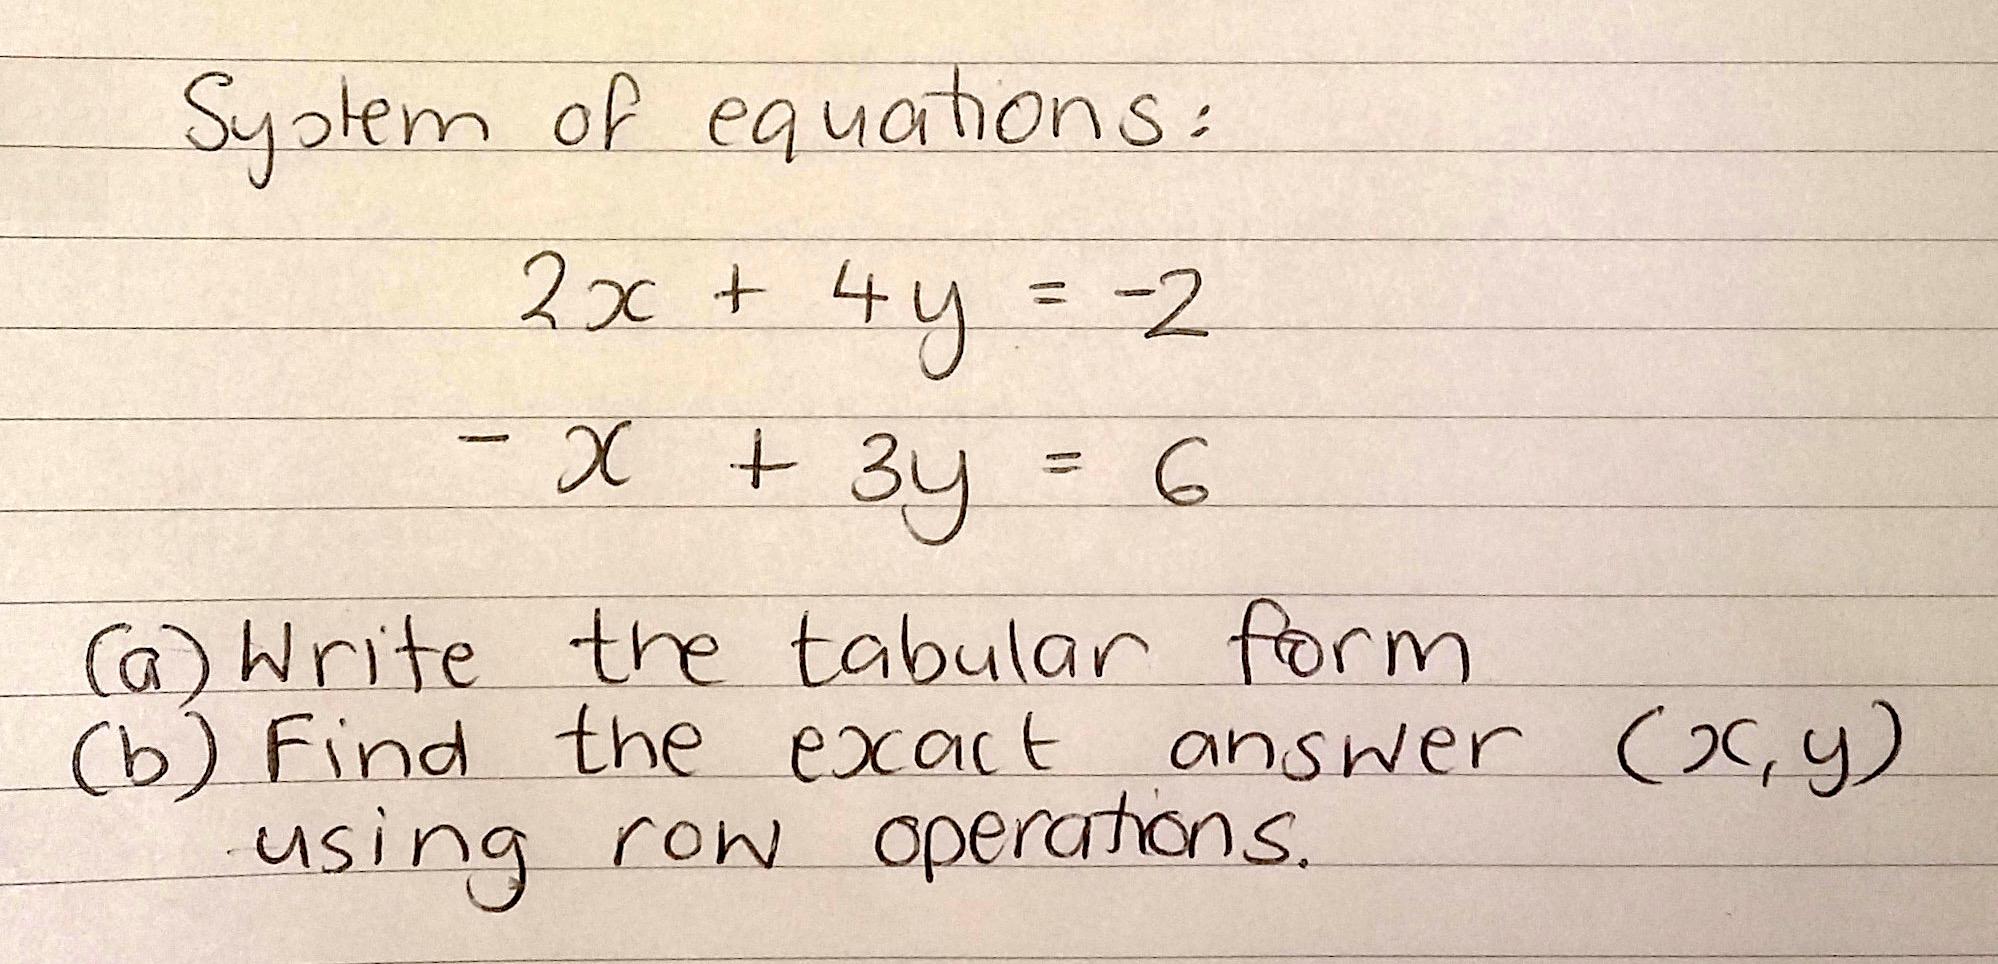 System of equations:
2x + 4y = -2
- x + 3y = 6
(a) Write the tabular form
(b) Find the exact answer (x, y)
using row operations.